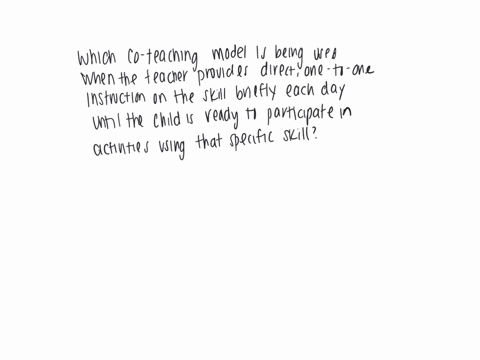 Which co-teaching model is being used
when the teacher provides direct, one-to-one
instruction on the skill briefly each day
until the child is ready to participate in
activities using that specific skill?